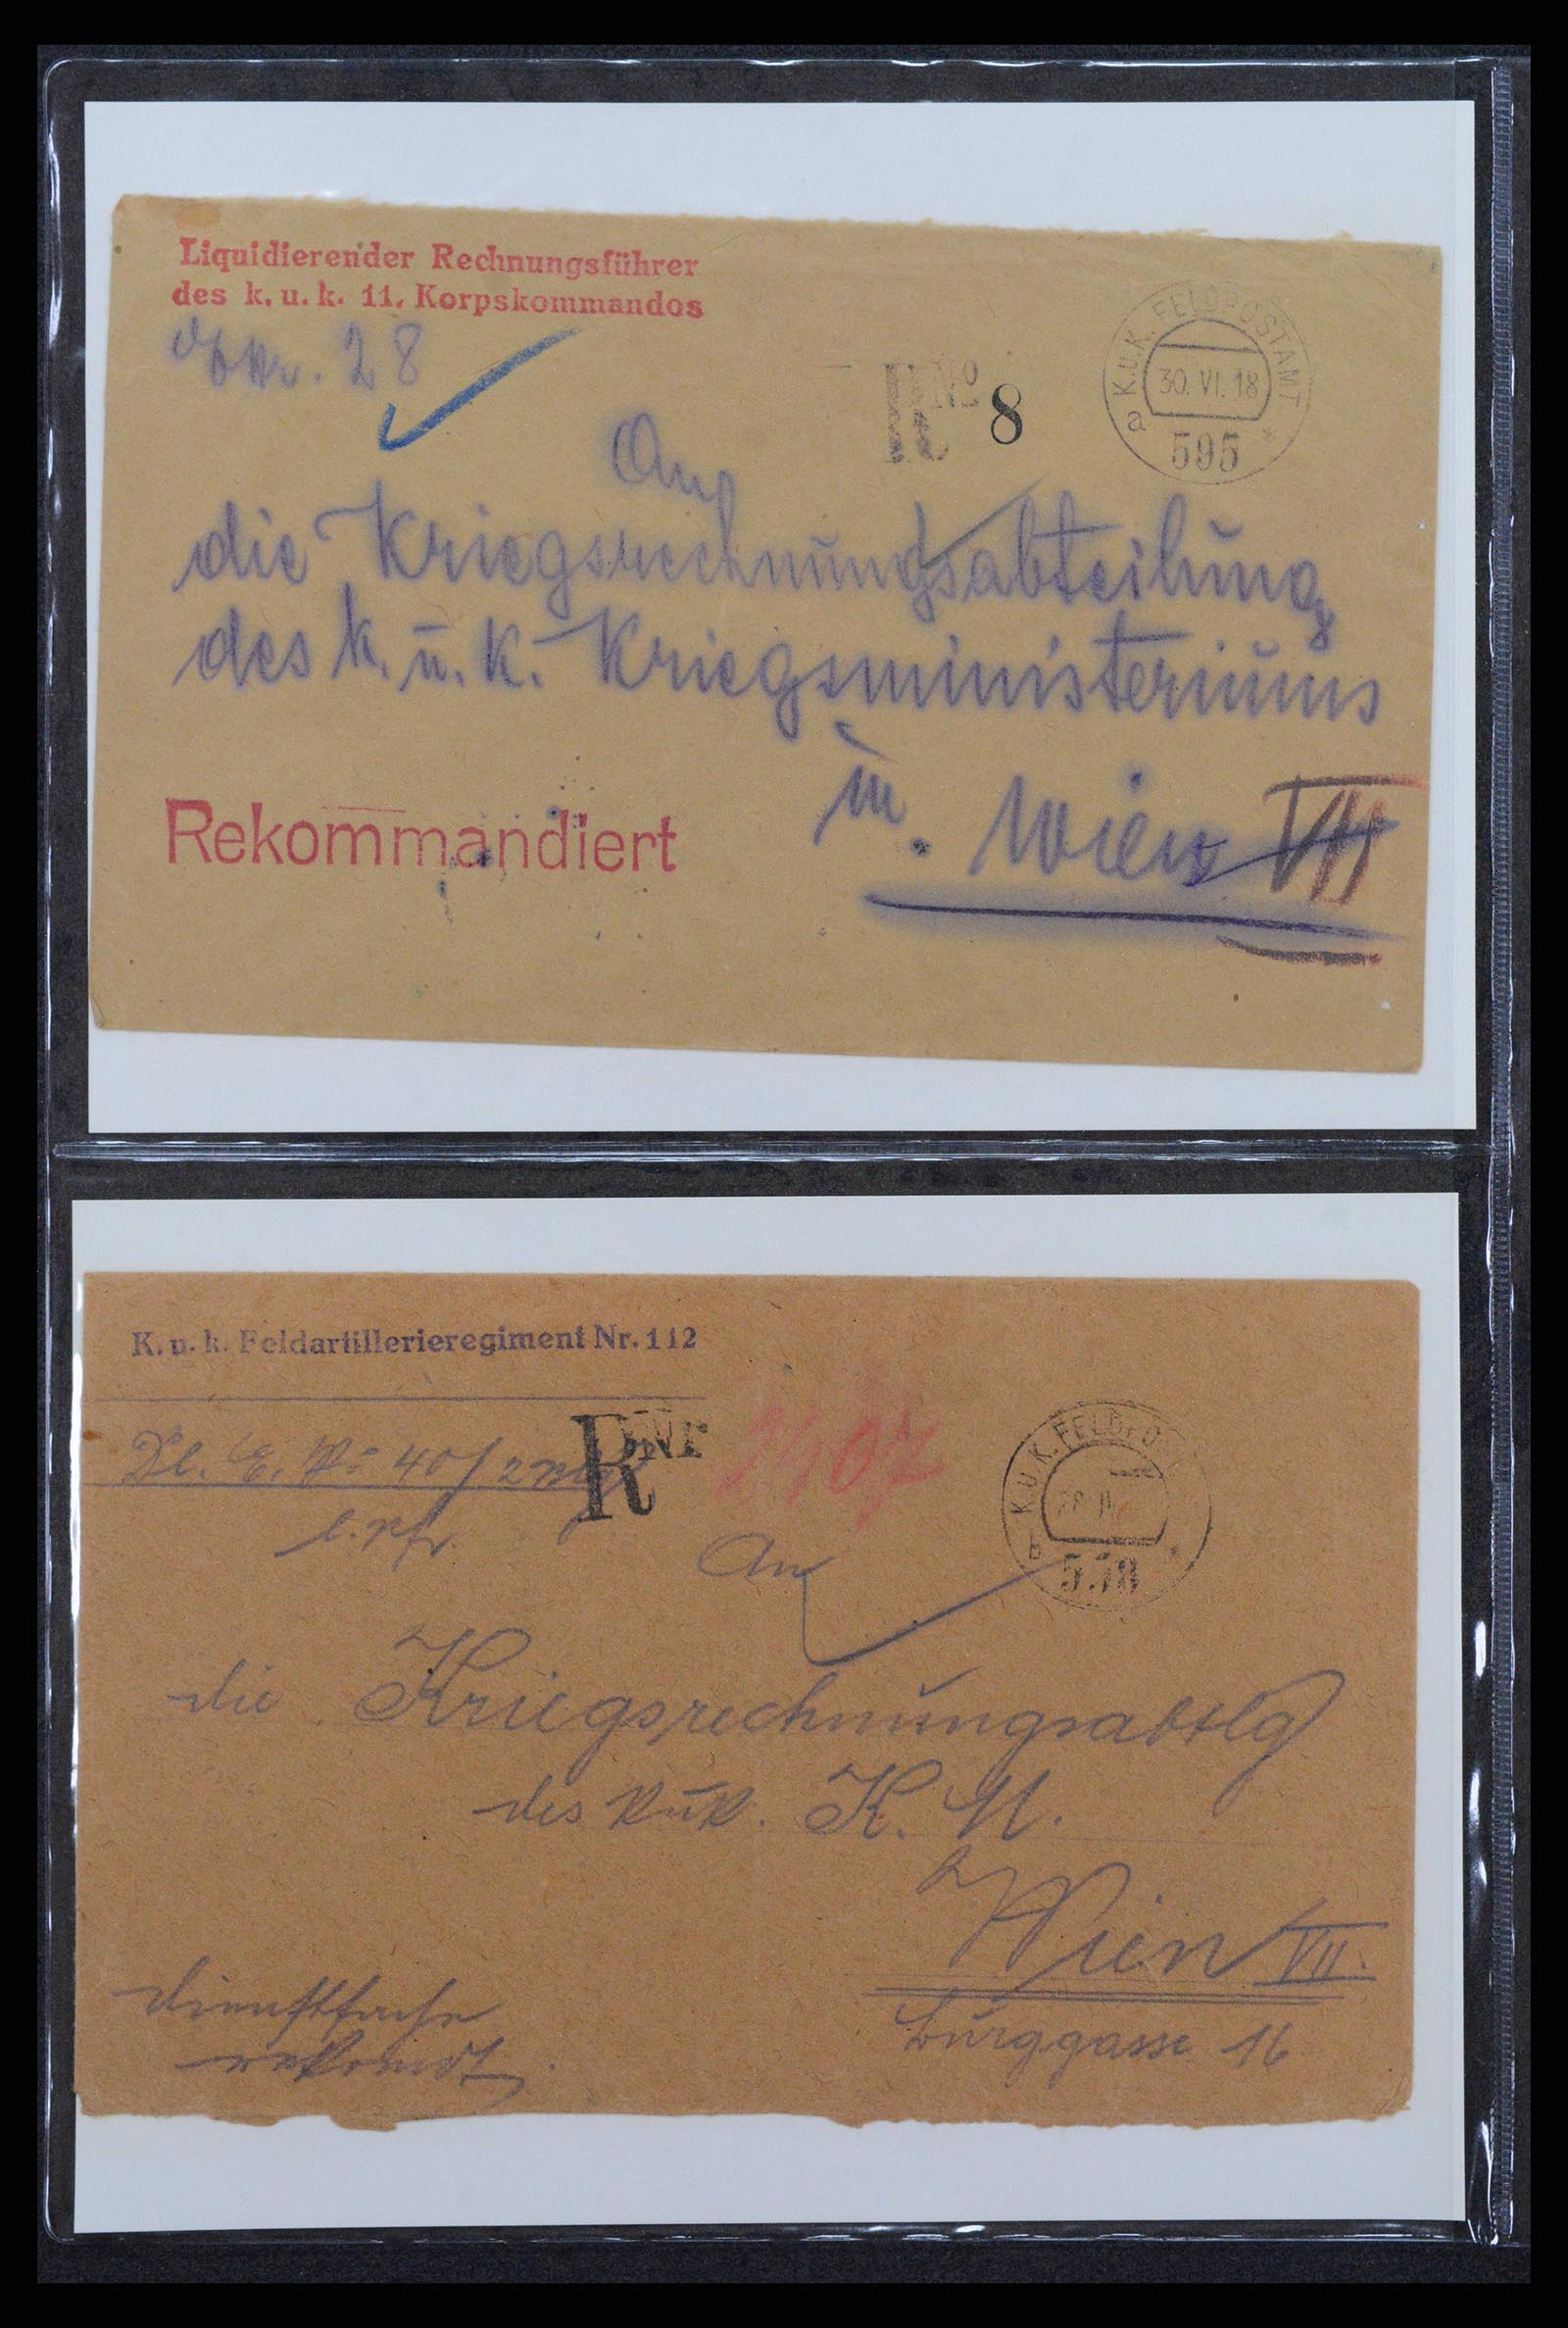 Liquidierender Rechnungsführer
des k. u. k. 11. Korpskommandos
28
R No 8
K.U.K. FELDPOSTAMT
30. VI. 18
a *
595
An
die Kriegsrechnungsabteilung
des k. u. k. Kriegsministeriums
in Wien VII
Rekommandiert
K. u. k. Feldartillerieregiment Nr. 112
E. No 40/
R Nr 2407
K.U.K. FELDPO
28
An
die Kriegsrechnungsabtlg
des kuk. K. M.
Wien VII.
Burggasse 16
Dienstsache
rekomdt.